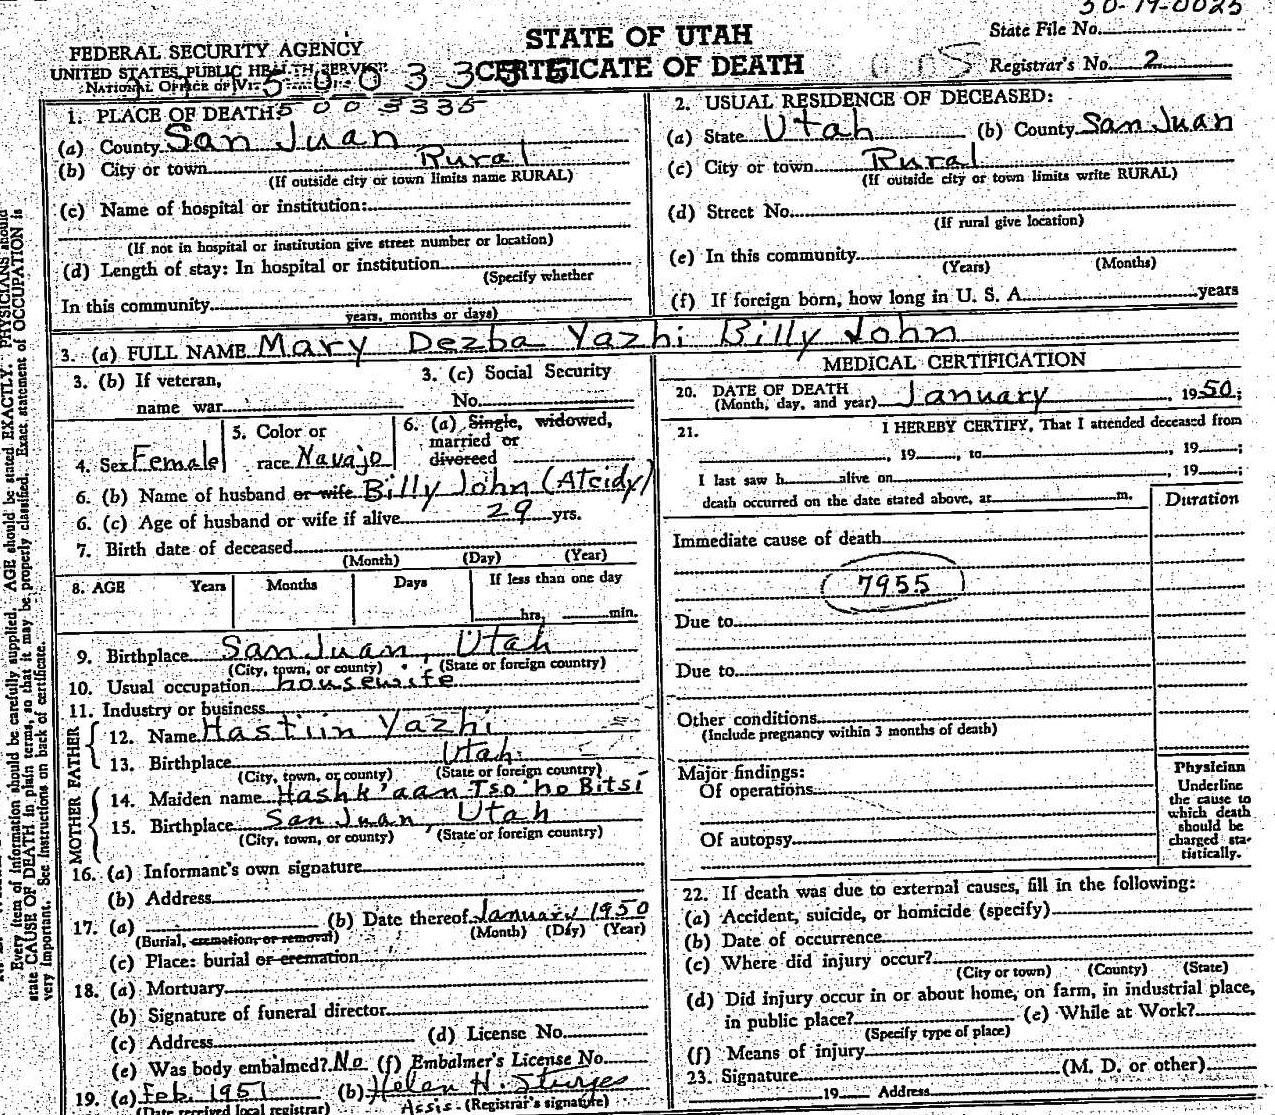 50-19-0025
State File No.
FEDERAL SECURITY AGENCY
UNITED STATES PUBLIC HEALTH SERVICE
STATE OF UTAH
CERTIFICATE OF DEATH
Registrar's No. 2
1. PLACE OF DEATH:
(a) County San Juan
(b) City or town Rural
(If outside city or town limits name RURAL)
(c) Name of hospital or institution:
(If not in hospital or institution give street number or location)
(d) Length of stay: In hospital or institution
(Specify whether
In this community
years, months or days)
2. USUAL RESIDENCE OF DECEASED:
(a) State Utah (b) County San Juan
(c) City or town Rural
(If outside city or town limits write RURAL)
(d) Street No.
(If rural give location)
(e) In this community
(Years) (Months)
(f) If foreign born, how long in U. S. A. years
3. (a) FULL NAME Mary Dezba Yazhi Billy John
3. (b) If veteran,
name war
3. (c) Social Security
No.
4. Sex Female
5. Color or
race Navajo
6. (a) Single, widowed,
married or
divorced
6. (b) Name of husband or wife Billy John (Atcidy)
6. (c) Age of husband or wife if alive 29 yrs.
7. Birth date of deceased
(Month) (Day) (Year)
8. AGE Years Months Days If less than one day
hrs. min.
9. Birthplace San Juan, Utah
(City, town, or county) (State or foreign country)
10. Usual occupation housewife
11. Industry or business
FATHER
12. Name Hastiin Yazhi
13. Birthplace Utah
(City, town, or county) (State or foreign country)
MOTHER
14. Maiden name Hashk'aan Tso ho Bitsi
15. Birthplace San Juan, Utah
(City, town, or county) (State or foreign country)
16. (a) Informant's own signature
(b) Address
17. (a) (b) Date thereof January 1950
(Burial, cremation, or removal) (Month) (Day) (Year)
(c) Place: burial or cremation
18. (a) Mortuary
(b) Signature of funeral director
(c) Address (d) License No.
(e) Was body embalmed? No (f) Embalmer's License No.
19. (a) Feb. 1951 (b) Helen H. Sturges
(Date received local registrar) Assis. (Registrar's signature)
MEDICAL CERTIFICATION
20. DATE OF DEATH
(Month, day, and year) January, 1950;
21. I HEREBY CERTIFY, That I attended deceased from
, 19 , to , 19 ;
I last saw h alive on , 19 ;
death occurred on the date stated above, at m.
Duration
Immediate cause of death
7955
Due to
Due to
Other conditions
(Include pregnancy within 3 months of death)
Major findings:
Of operations
Of autopsy
Physician
Underline
the cause to
which death
should be
charged sta-
tistically.
22. If death was due to external causes, fill in the following:
(a) Accident, suicide, or homicide (specify)
(b) Date of occurrence
(c) Where did injury occur?
(City or town) (County) (State)
(d) Did injury occur in or about home, on farm, in industrial place,
in public place? (e) While at Work?
(Specify type of place)
(f) Means of injury
23. Signature (M. D. or other)
19 Address
Every item of information should be carefully supplied. AGE should be stated EXACTLY. PHYSICIANS should
state CAUSE OF DEATH in plain terms, so that it may be properly classified. Exact statement of OCCUPATION is
very important. See instructions on back of certificate.